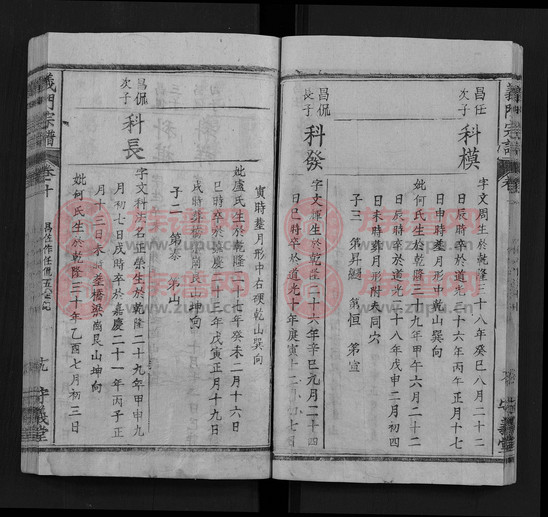 義門宗譜
昌任
次子
科模
字文周生於乾隆三十八年癸巳八月二十二
日辰時卒於道光二十六年丙午正月十七
日申時葬月形中乾山巽向
妣何氏生於乾隆三十九年甲午六月二十二
日辰時卒於道光二十八年戊申二月初四
日未時葬月形附夫同穴
子三 第昇 第恒 第宣
昌侃
長子
科發
字文 生於乾隆二十六年辛巳九月二十四
日巳時卒於道光十年庚寅十二
寅時葬月形中右硬乾山巽向
妣盧氏生於乾隆二十七年癸未二月十六日
巳時卒於嘉慶二十三年戊寅正月十九日
戌時葬橋 艮山坤向
子二 第泰 第山
昌侃
次子
科長
字文科 名 榮生於乾隆二十九年甲申九
月初七日戌時卒於嘉慶二十一年丙子正
月十三日未時葬橋梁 艮山坤向
妣何氏生於乾隆三十年乙酉七月初三日
義門宗譜
卷十
十九
守義堂
族譜網
www.zupu.cn